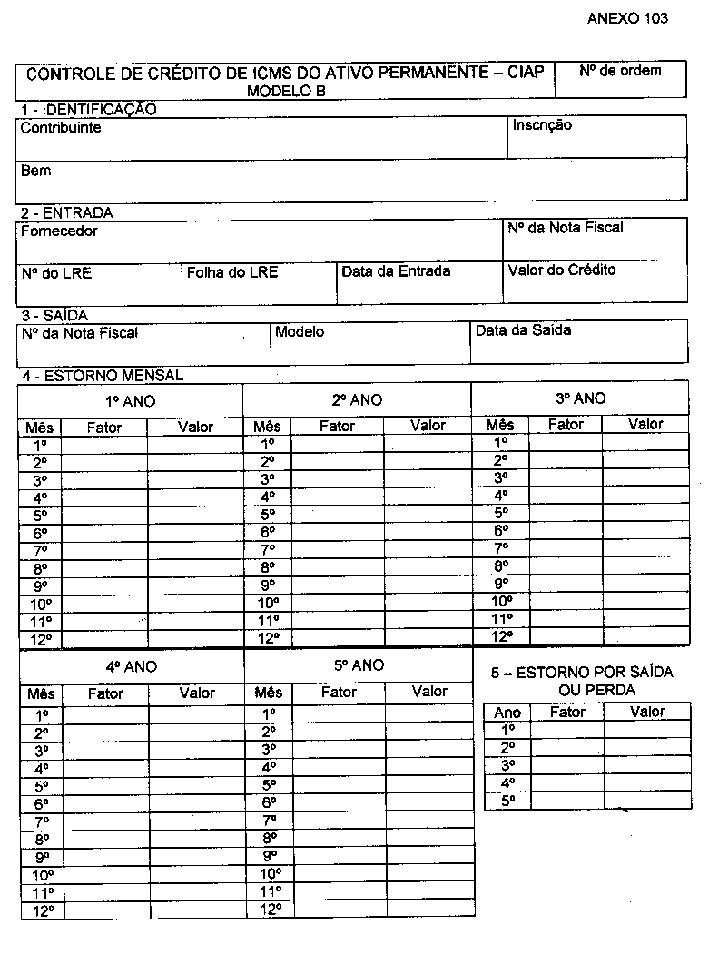 ANEXO 103
CONTROLE DE CRÉDITO DE ICMS DO ATIVO PERMANENTE – CIAP
MODELO B
Nº de ordem
1 - IDENTIFICAÇÃO
Contribuinte Inscrição
Bem
2 - ENTRADA
Fornecedor Nº da Nota Fiscal
Nº do LRE Folha do LRE Data da Entrada Valor do Crédito
3 - SAÍDA
Nº da Nota Fiscal Modelo Data da Saída
4 - ESTORNO MENSAL
1º ANO 2º ANO 3º ANO
Mês Fator Valor Mês Fator Valor Mês Fator Valor
1º 1º 1º
2º 2º 2º
3º 3º 3º
4º 4º 4º
5º 5º 5º
6º 6º 6º
7º 7º 7º
8º 8º 8º
9º 9º 9º
10º 10º 10º
11º 11º 11º
12º 12º 12º
4º ANO 5º ANO
Mês Fator Valor Mês Fator Valor
1º 1º
2º 2º
3º 3º
4º 4º
5º 5º
6º 6º
7º 7º
8º 8º
9º 9º
10º 10º
11º 11º
12º 12º
5 – ESTORNO POR SAÍDA
OU PERDA
Ano Fator Valor
1º
2º
3º
4º
5º